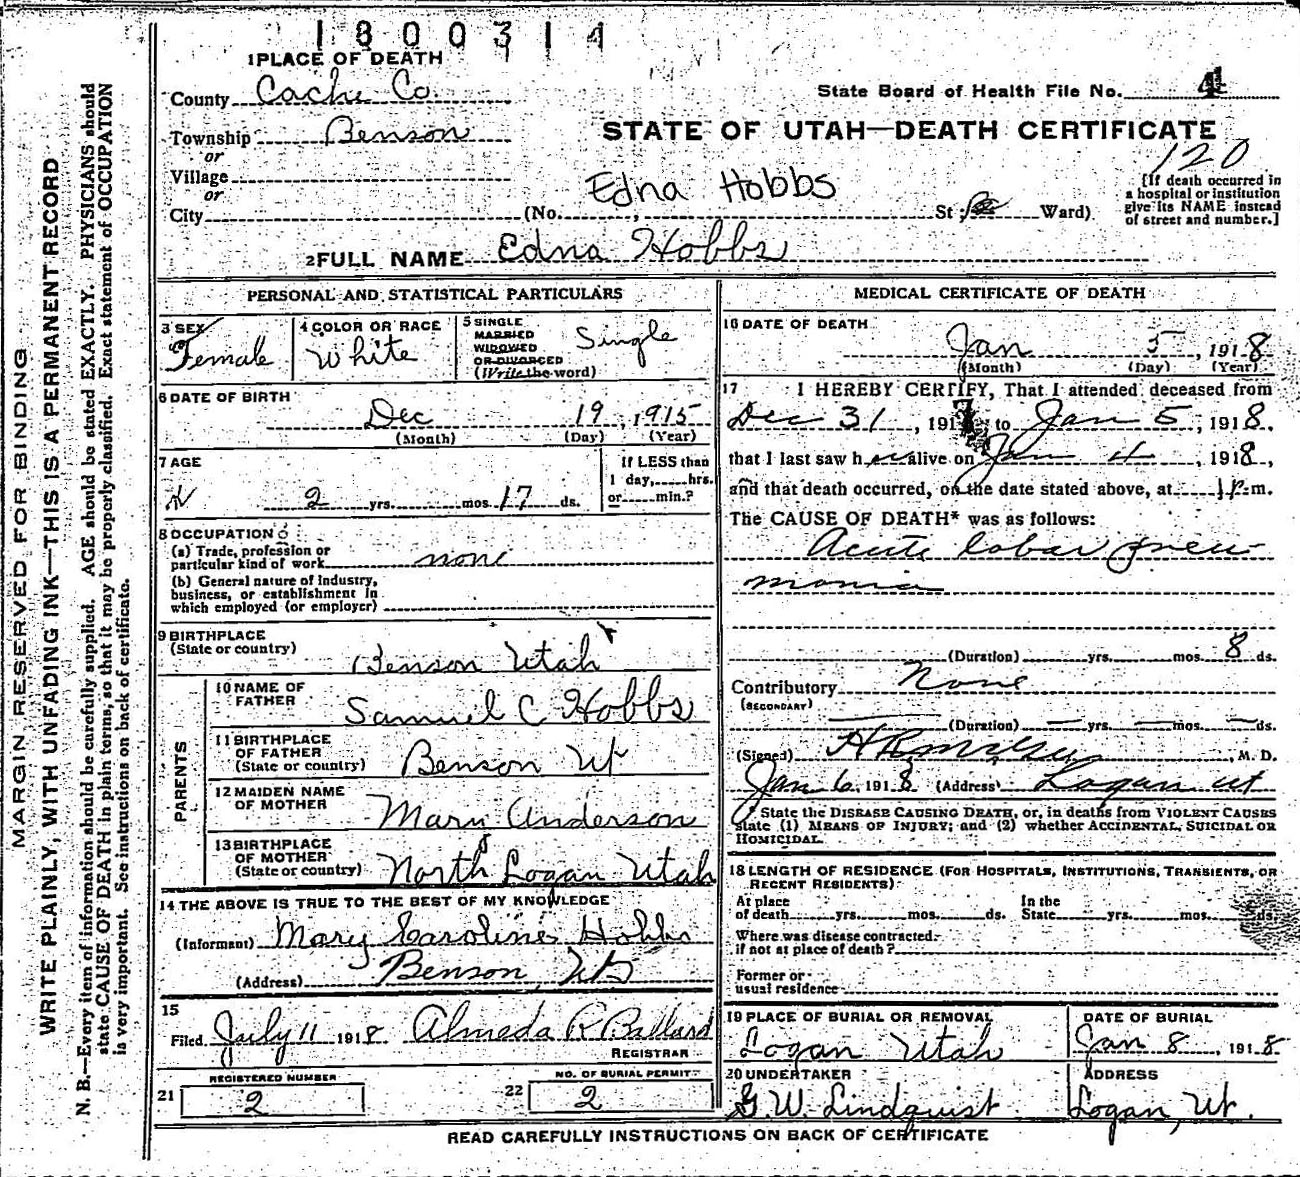 1800314
1 PLACE OF DEATH
County Cache Co.
State Board of Health File No. 4
Township Benson
or
STATE OF UTAH—DEATH CERTIFICATE
120
Village
or
City
(No. , St.; Ward)
Edna Hobbs
[If death occurred in
a hospital or institution
give its NAME instead
of street and number.]
2 FULL NAME Edna Hobbs
PERSONAL AND STATISTICAL PARTICULARS
3 SEX
Female
4 COLOR OR RACE
White
5 SINGLE
MARRIED
WIDOWED
OR DIVORCED
(Write the word)
Single
6 DATE OF BIRTH
Dec 19, 1915
(Month) (Day) (Year)
7 AGE
2 yrs. mos. 17 ds.
If LESS than
1 day, hrs.
or min.?
8 OCCUPATION
(a) Trade, profession or
particular kind of work none
(b) General nature of industry,
business, or establishment in
which employed (or employer)
9 BIRTHPLACE
(State or country)
Benson Utah
PARENTS
10 NAME OF
FATHER
Samuel C Hobbs
11 BIRTHPLACE
OF FATHER
(State or country) Benson Ut
12 MAIDEN NAME
OF MOTHER
Mary Anderson
13 BIRTHPLACE
OF MOTHER
(State or country) North Logan Utah
14 THE ABOVE IS TRUE TO THE BEST OF MY KNOWLEDGE
(Informant) Mary Caroline Hobbs
(Address) Benson, Ut
15
Filed July 11 1918 Almeda R Ballard
REGISTRAR
REGISTERED NUMBER
21 2
NO. OF BURIAL PERMIT
22 2
MEDICAL CERTIFICATE OF DEATH
16 DATE OF DEATH
Jan 5, 1918
(Month) (Day) (Year)
17 I HEREBY CERTIFY, That I attended deceased from
Dec 31, 1917 to Jan 5, 1918.
that I last saw her alive on Jan 4, 1918,
and that death occurred, on the date stated above, at m.
The CAUSE OF DEATH* was as follows:
Acute lobar pneu-
monia
(Duration) yrs. mos. 8 ds.
Contributory None
(SECONDARY)
(Duration) yrs. mos. ds.
(Signed) , M. D.
Jan 6, 1918 (Address) Logan Ut
* State the DISEASE CAUSING DEATH, or, in deaths from VIOLENT CAUSES
state (1) MEANS OF INJURY; and (2) whether ACCIDENTAL, SUICIDAL OR
HOMICIDAL.
18 LENGTH OF RESIDENCE (FOR HOSPITALS, INSTITUTIONS, TRANSIENTS, OR
RECENT RESIDENTS)
At place
of death yrs. mos. ds.
In the
State yrs. mos. ds.
Where was disease contracted
if not at place of death?
Former or
usual residence
19 PLACE OF BURIAL OR REMOVAL
Logan Utah
DATE OF BURIAL
Jan 8, 1918
20 UNDERTAKER
G. W. Lindquist
ADDRESS
Logan, Ut.
READ CAREFULLY INSTRUCTIONS ON BACK OF CERTIFICATE
MARGIN RESERVED FOR BINDING
WRITE PLAINLY, WITH UNFADING INK—THIS IS A PERMANENT RECORD
N. B.—Every item of information should be carefully supplied. AGE should be stated EXACTLY. PHYSICIANS should
state CAUSE OF DEATH in plain terms, so that it may be properly classified. Exact statement of OCCUPATION
is very important. See instructions on back of certificate.